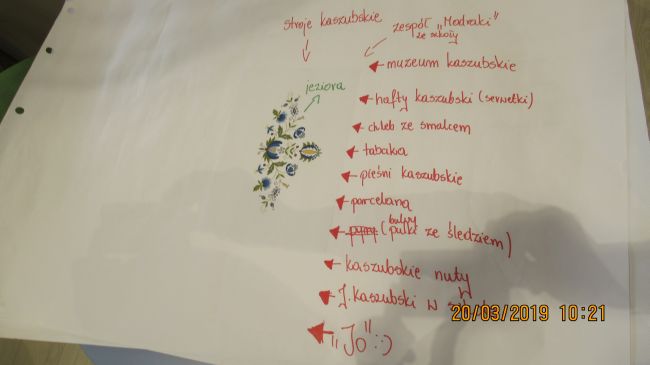 stroje kaszubskie
zespół "Modraki"
ze szkoły
muzeum kaszubskie
jeziora
hafty kaszubski (serwetki)
chleb ze smalcem
tabaka
pieśni kaszubskie
porcelana
bulwy
(pulki ze śledziem)
kaszubskie nuty
J. kaszubski w
"Jo" :)
20/03/2019 10:21